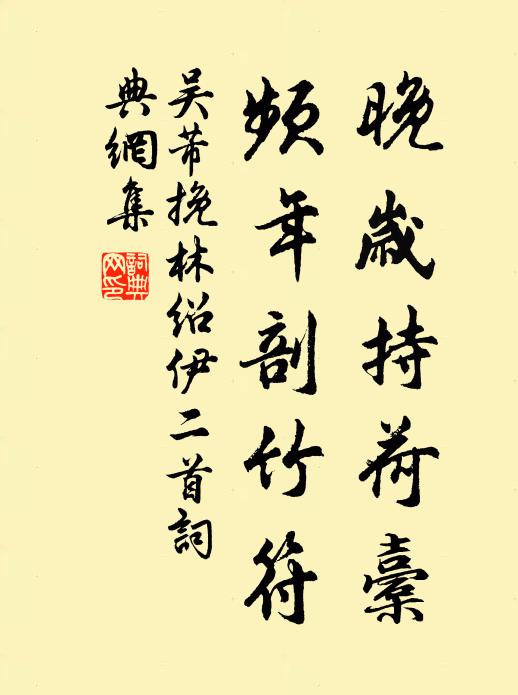 晚歲持荷橐
頻年剖竹符
吳芾挽林紹伊二首詞
典網集
詞典網印